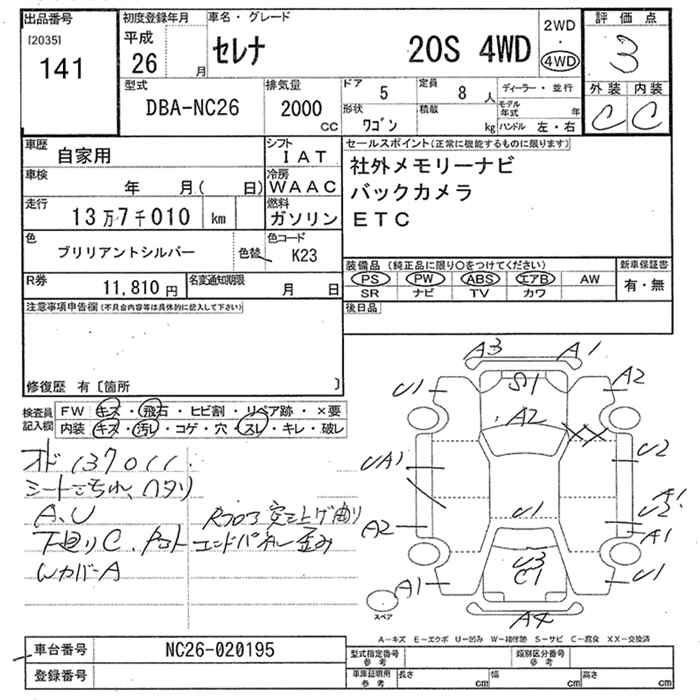 出品番号
[2035]
141
初度登録年月
平成
26 月
車名・グレード
セレナ 20S 4WD
2WD
・
4WD
評価点
3
外装 内装
C C
型式
DBA-NC26
排気量
2000
cc
ドア
5
定員
8 人
形状
ワゴン
積載
kg
ディーラー・並行
モデル年式 年
ハンドル 左・右
車歴
自家用
シフト
IAT
車検
年 月( 日)
冷房
WAAC
走行
13万7千010 km
燃料
ガソリン
色
ブリリアントシルバー
色替
色コード
K23
R券
11,810 円
名変通知期限
月 日
セールスポイント(正常に機能するものに限ります)
社外メモリーナビ
バックカメラ
ETC
装備品 (純正品に限り○をつけてください)
PS PW ABS エアB AW
SR ナビ TV カワ
新車保証書
有・無
後日品
注意事項申告欄(不具合内容等は具体的に記入して下さい)
修復歴 有〔箇所 〕
検査員
記入欄
FW キズ・飛石・ヒビ割・リペア跡・×要
内装 キズ・汚レ・コゲ・穴・スレ・キレ・破レ
オド137011.
シートこちれ、ヘタリ
A、U
下廻りC、
エンドパネル歪み
WカバーA
A3 A1
U1 S1 A2
A2 XX
UA1 U2
U1
A1
U2
A2 A1
U3
C1
A1 U1
A4
スペア
A-キズ E-エクボ U-凹み W-補修跡 S-サビ C-腐食 XX-交換済
車台番号
NC26-020195
登録番号
型式指定番号
参考
類別区分番号
参考
車庫証明用
参考
長さ cm
幅 cm
高さ cm